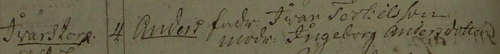 Ivarstorp. 4 Anders fadr: Ivar Torkilsson
modr: Ingeborg Andersdotter